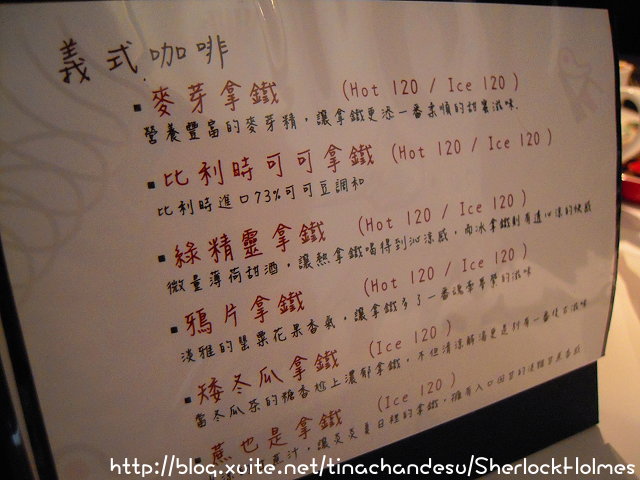 義式咖啡
▪麥芽拿鐵 (Hot 120 / Ice 120 )
營養豐富的麥芽精，讓拿鐵更添一番柔順的甜蜜滋味.
▪比利時可可拿鐵 (Hot 120 / Ice 120 )
比利時進口73%可可豆調和
▪綠精靈拿鐵 (Hot 120 / Ice 120 )
微量薄荷甜酒，讓熱拿鐵喝得到沁涼感，而冰拿鐵則有透心涼的快感
▪鴉片拿鐵 (Hot 120 / Ice 120 )
淡雅的罌粟花果香氣，讓拿鐵多了一番魂牽夢縈的滋味
▪矮冬瓜拿鐵 (Ice 120 )
當冬瓜茶的糖香尬上濃郁拿鐵，不但清涼解渴更是別有一番復古滋味
▪蔗也是拿鐵 (Ice 120 )
蔗汁，讓炎炎夏日裡的拿鐵，擁有入口回甘的
http://blog.xuite.net/tinachandesu/SherlockHolmes